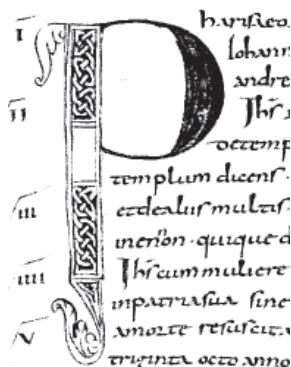 I Pharisaeo
Iohann
andre
II Ihs̄ a
de temp
templum dicens ·
III et de aliis multis ·
in en̄on · quique d
IIII Ihs̄ cum muliere
in patria sua sine
V a morte resuscita
triginta octo anno